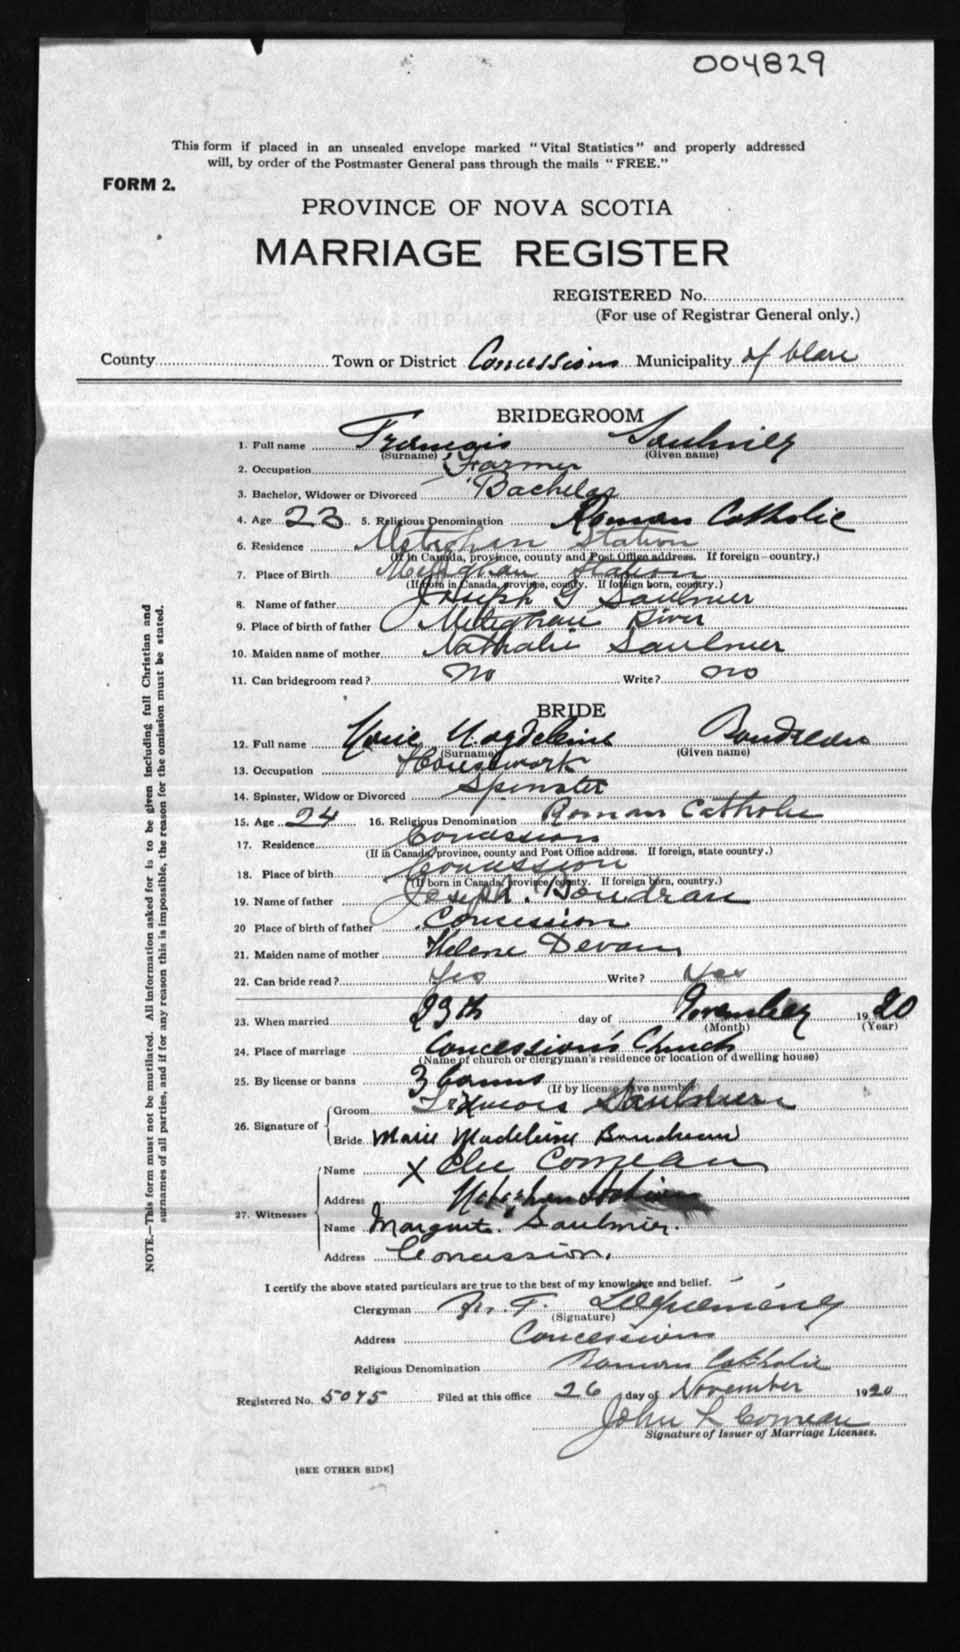 004829
This form if placed in an unsealed envelope marked "Vital Statistics" and properly addressed
will, by order of the Postmaster General pass through the mails "FREE."
FORM 2.
PROVINCE OF NOVA SCOTIA
MARRIAGE REGISTER
REGISTERED No.
(For use of Registrar General only.)
County Town or District Concessions Municipality of Clare
BRIDEGROOM
1. Full name Francois Saulnier
(Surname) (Given name)
2. Occupation Farmer
3. Bachelor, Widower or Divorced Bachelor
4. Age 23 5. Religious Denomination Roman Catholic
6. Residence Meteghan Station
(If in Canada, province, county and Post Office address. If foreign—country.)
7. Place of Birth Meteghan Station
(If born in Canada, province, county. If foreign born, country.)
8. Name of father Joseph G Saulnier
9. Place of birth of father Meteghan River
10. Maiden name of mother Nathalie Saulnier
11. Can bridegroom read? No Write? no
BRIDE
12. Full name Marie Magdeleine Boudreau
(Surname) (Given name)
13. Occupation Housework
14. Spinster, Widow or Divorced Spinster
15. Age 24 16. Religious Denomination Roman Catholic
17. Residence Concession
(If in Canada, province, county and Post Office address. If foreign, state country.)
18. Place of birth Concession
(If born in Canada, province, county. If foreign born, country.)
19. Name of father Joseph. Boudrau
20 Place of birth of father Concession
21. Maiden name of mother Helene
22. Can bride read? Yes Write? Yes
23. When married 23th day of November 1920
(Month) (Year)
24. Place of marriage Concession's Church
(Name of church or clergyman's residence or location of dwelling house)
25. By license or banns 3 banns
(If by license give number)
26. Signature of Groom Francois Saulnier
Bride Marie Madeleine Boudreau
27. Witnesses Name X Elie Comeau
Address Meteghan Station
Name Margurite Saulnier.
Address Concession.
NOTE.—This form must not be mutilated. All information asked for is to be given including full Christian and
surnames of all parties, and if for any reason this is impossible, the reason for the omission must be stated.
I certify the above stated particulars are true to the best of my knowledge and belief.
Clergyman
(Signature)
Address Concessions
Religious Denomination Roman Catholic
Registered No. 5075 Filed at this office 26 day of November 1920
John L Comeau
Signature of Issuer of Marriage Licenses.
[SEE OTHER SIDE]